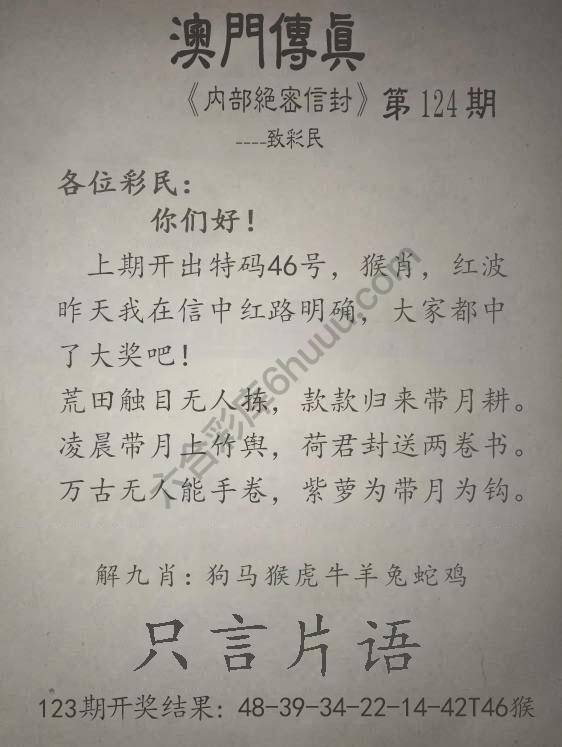 澳門傳真
《内部絕密信封》第124期
----致彩民
各位彩民：
你们好！
上期开出特码46号，猴肖，红波
昨天我在信中红路明确，大家都中
了大奖吧！
荒田触目无人拣，款款归来带月耕。
凌晨带月上竹舆，荷君封送两卷书。
万古无人能手卷，紫萝为带月为钩。
解九肖：狗马猴虎牛羊兔蛇鸡
只言片语
123期开奖结果：48-39-34-22-14-42T46猴
六合彩库6huuu.com